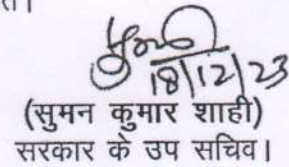 त।
18/12/23
(सुमन कुमार शाही)
सरकार के उप सचिव।